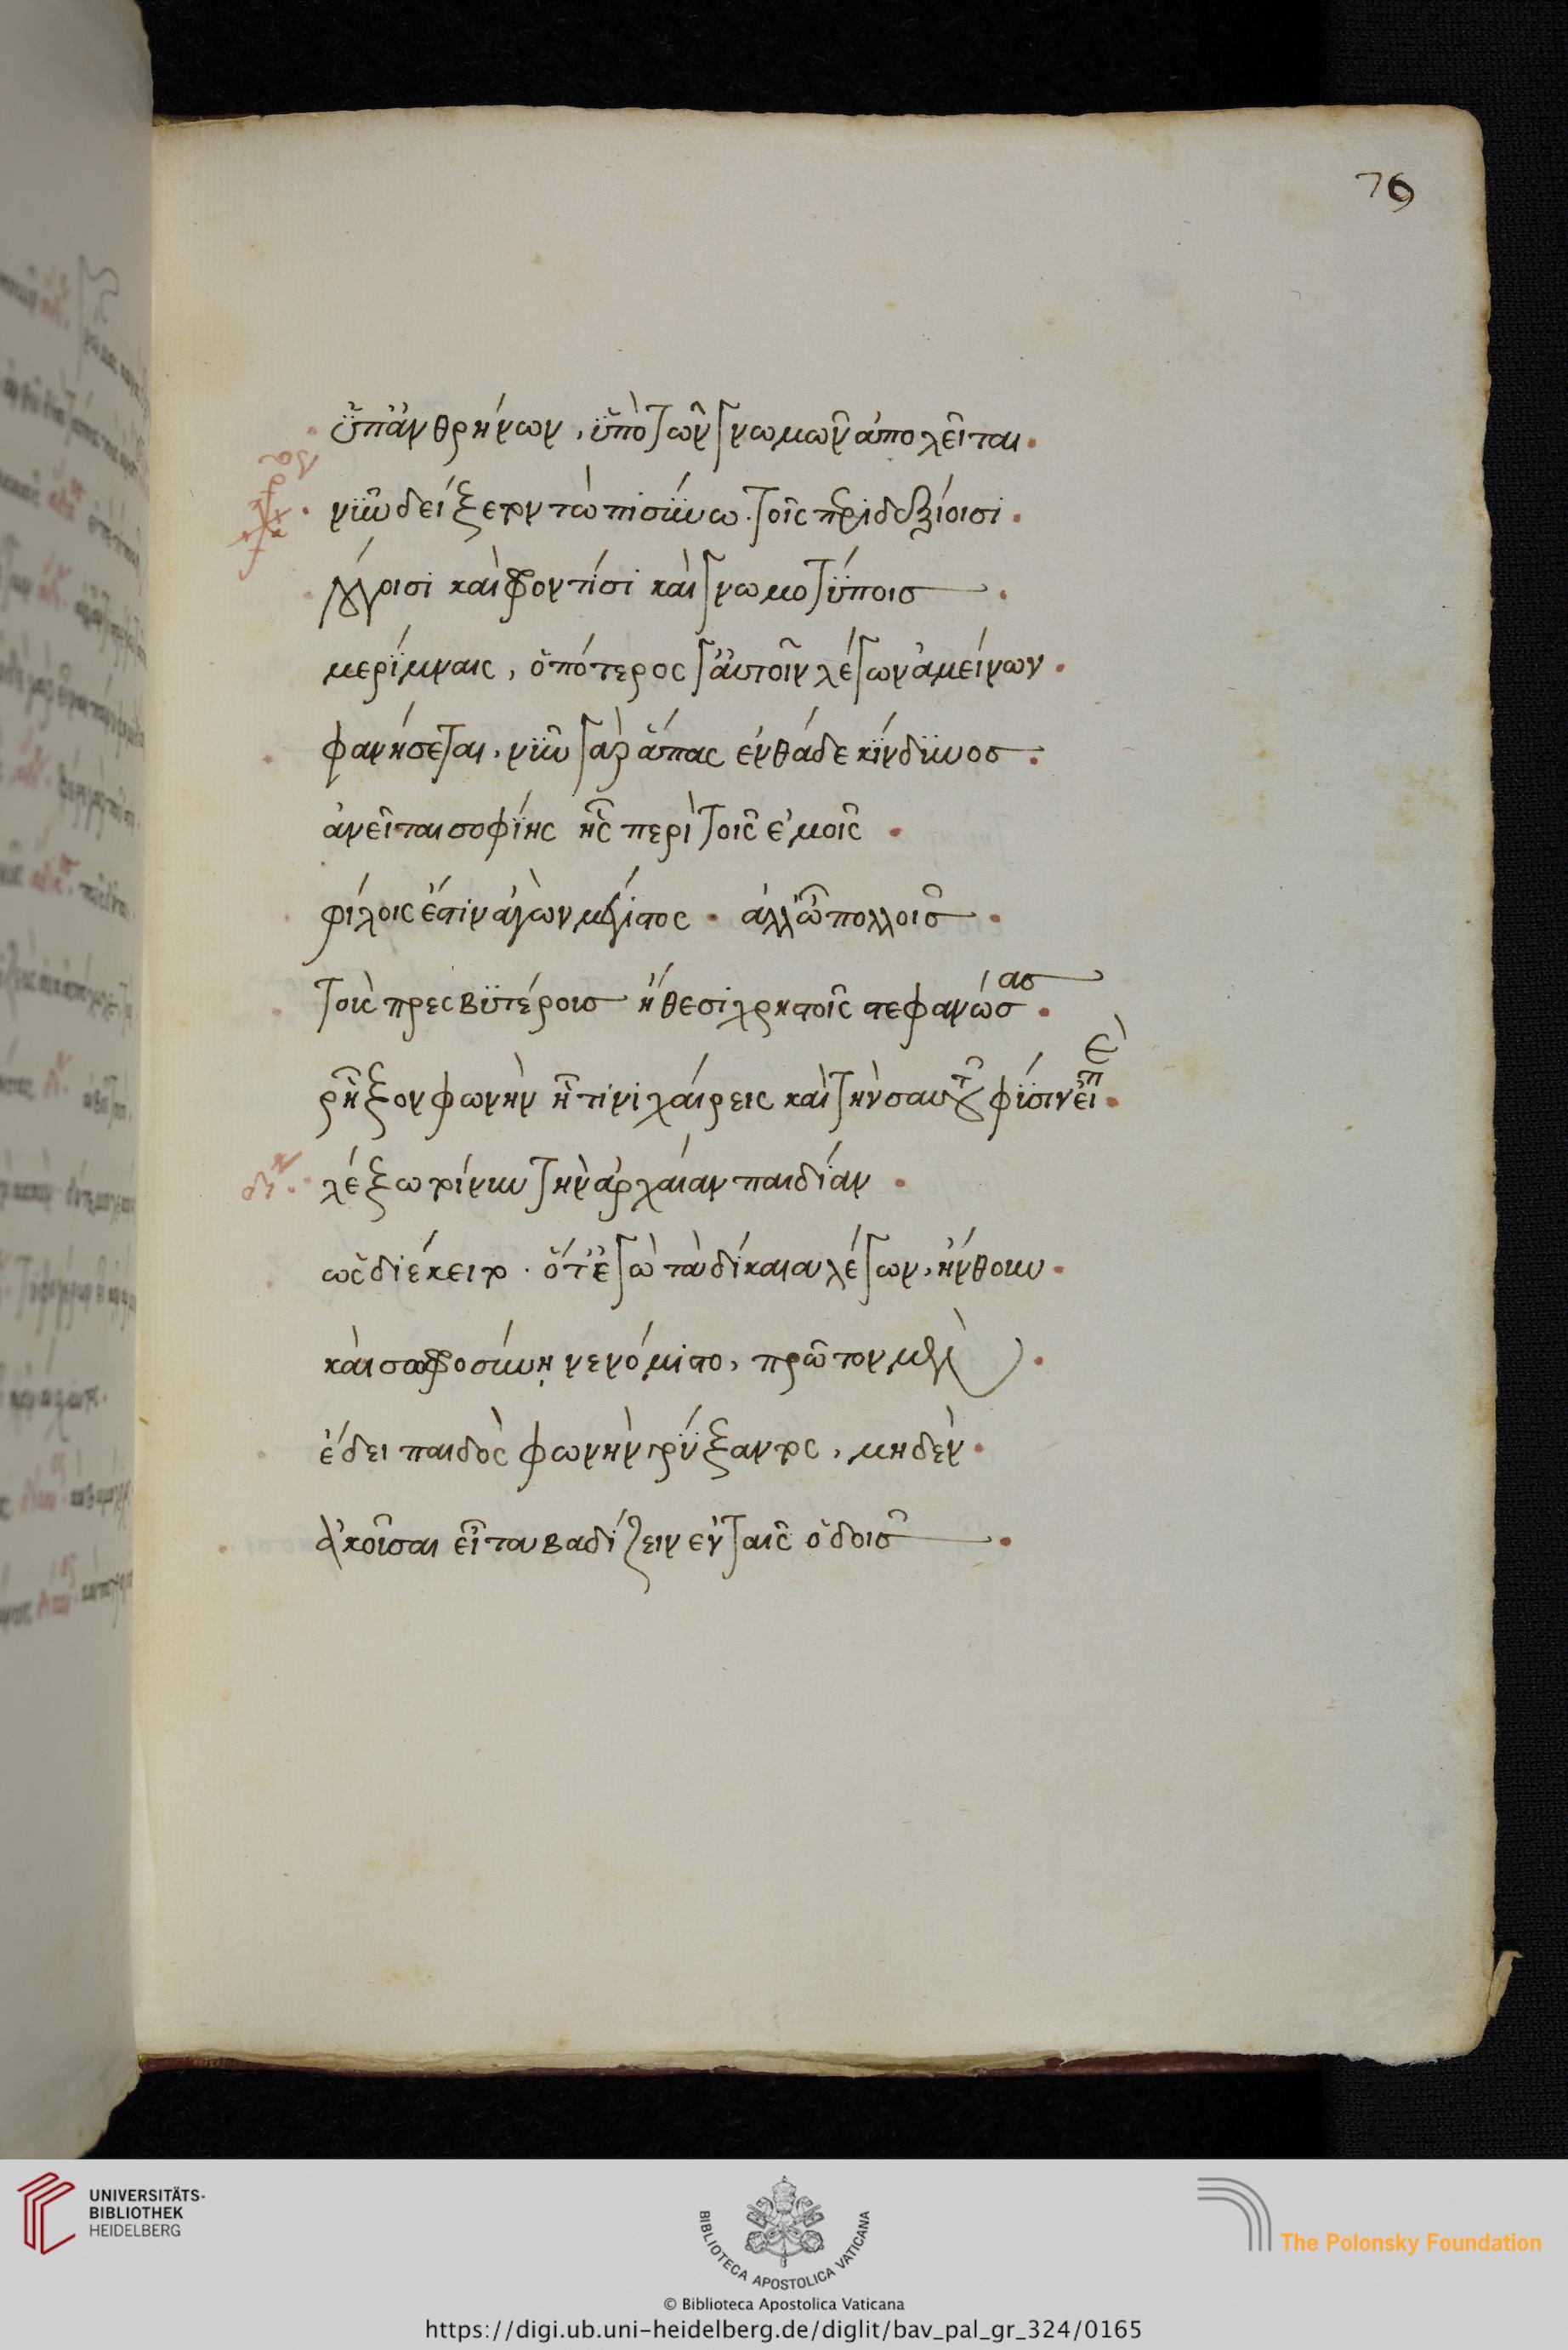 79
ὑπ' ἀνθρηνῶν, ὑπὸ τῶν γνωμῶν ἀπολεῖται.
νῦν δείξετον τὼ πισύνω. τοῖς περιδεξίοισι.
λόγοισι καὶ φροντίσι καὶ γνωμοτύποις.
μερίμναις, ὁπότερος γ' αὐτοῖν λέγων ἀμείνων.
φανήσεται. νῦν γὰρ ἅπας ἐνθάδε κίνδυνος.
ἀνεῖται σοφίης ἧς περὶ τοῖς ἐμοῖς.
φίλοις ἐστὶν ἀγὼν μέγιστος. ἀλλ' ὦ πολλοῖς.
τοὺς πρεσβυτέροις ἤθεσι χρηστοῖς στεφανώσας.
ῥῆξον φωνὴν ᾗτινι χαίρεις καὶ τὴν σαυτοῦ φύσιν εἰπέ.
λέξω τοίνυν τὴν ἀρχαίαν παιδίαν.
ὡς διέκειτο. ὅτ' ἐγὼ τὰ δίκαια λέγων, ἤνθουν.
καὶ σωφροσύνη νενόμιστο, πρῶτον μὲν.
ἔδει παιδὸς φωνὴν γρύξαντος, μηδὲν.
ἀκοῦσαι εἶτα βαδίζειν ἐν ταῖς ὁδοῖς.
UNIVERSITÄTS-
BIBLIOTHEK
HEIDELBERG
BIBLIOTECA APOSTOLICA VATICANA
The Polonsky Foundation
© Biblioteca Apostolica Vaticana
https://digi.ub.uni-heidelberg.de/diglit/bav_pal_gr_324/0165